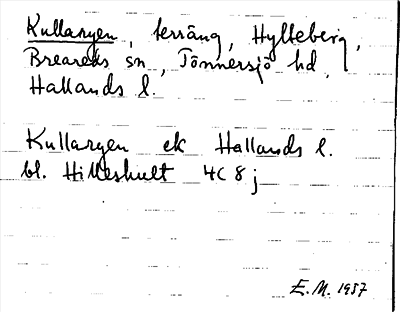 Kullaryen, terräng, Hylleberg,
Breareds sn, Tönnersjö hd,
Hallands l.
Kullaryen ek Hallands l.
bl. Hilleshult 4C 8 j
E.M. 1957